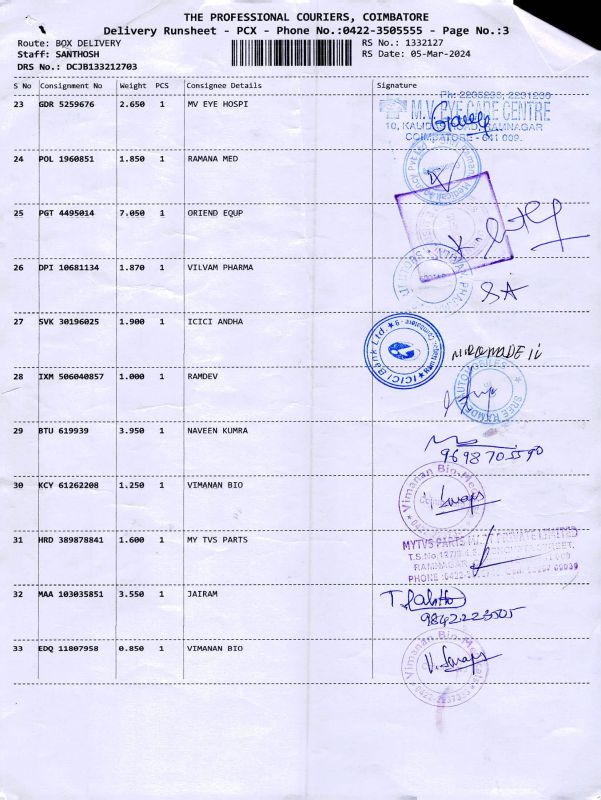 THE PROFESSIONAL COURIERS, COIMBATORE
Delivery Runsheet - PCX - Phone No.:0422-3505555 - Page No.:3
Route: BOX DELIVERY
Staff: SANTHOSH
DRS No.: DCJB133212703
RS No.: 1332127
RS Date: 05-Mar-2024
S No Consignment No Weight PCS Consignee Details Signature
23 GDR 5259676 2.650 1 MV EYE HOSPI
M.V. EYE CARE CENTRE
RAMNAGAR
COIMBATORE - 641 009.
24 POL 1960851 1.850 1 RAMANA MED
25 PGT 4495014 7.050 1 ORIEND EQUP
26 DPI 10681134 1.870 1 VILVAM PHARMA
27 SVK 30196025 1.900 1 ICICI ANDHA
ICICI Bank Ltd.
28 IXM 506040857 1.000 1 RAMDEV
SREE RAMDEV AUTOMOBILES
29 BTU 619939 3.950 1 NAVEEN KUMRA
30 KCY 61262208 1.250 1 VIMANAN BIO
Vimanan Bio-Medicals
31 HRD 389878841 1.600 1 MY TVS PARTS
MYTVS PARTS PRIVATE LIMITED
32 MAA 103035851 3.550 1 JAIRAM
9842223505
33 EDQ 11807958 0.850 1 VIMANAN BIO
Vimanan Bio-Medicals
0422-2237353